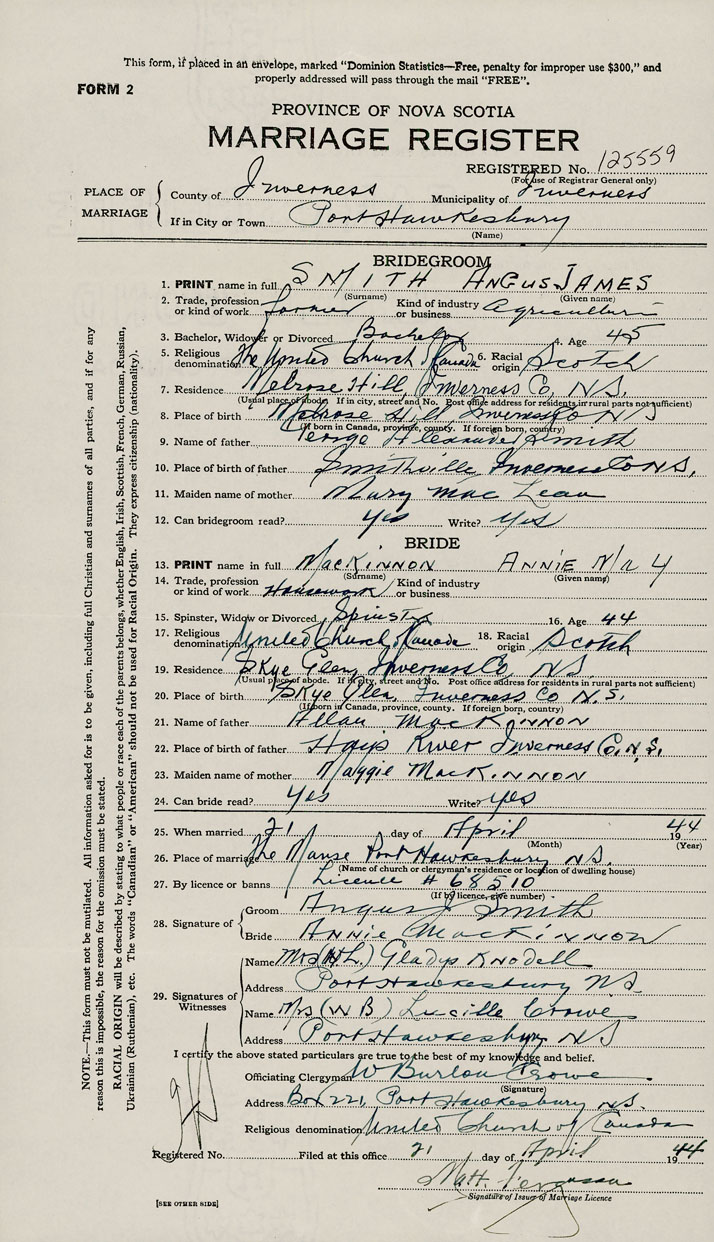 This form, if placed in an envelope, marked "Dominion Statistics—Free, penalty for improper use $300," and
properly addressed will pass through the mail "FREE".
FORM 2
PROVINCE OF NOVA SCOTIA
MARRIAGE REGISTER
REGISTERED No. 125559
(For use of Registrar General only)
PLACE OF MARRIAGE
County of Inverness Municipality of Inverness
If in City or Town Port Hawkesbury
(Name)
BRIDEGROOM
1. PRINT name in full SMITH ANGUS JAMES
(Surname) (Given name)
2. Trade, profession or kind of work farmer Kind of industry or business Agriculture
3. Bachelor, Widower or Divorced Bachelor 4. Age 45
5. Religious denomination The United Church of Canada 6. Racial origin Scotch
7. Residence Melrose Hill Inverness Co, N.S.
(Usual place of abode. If in city, street and No. Post office address for residents in rural parts not sufficient)
8. Place of birth Melrose Hill Inverness Co N S
(If born in Canada, province, county. If foreign born, country)
9. Name of father George Alexander Smith
10. Place of birth of father Smithville Inverness Co N.S.
11. Maiden name of mother Mary Mac Lean
12. Can bridegroom read? Yes Write? Yes
BRIDE
13. PRINT name in full MacKINNON ANNIE
(Surname) (Given name)
14. Trade, profession or kind of work Housework Kind of industry or business
15. Spinster, Widow or Divorced Spinster 16. Age 44
17. Religious denomination United Church of Canada 18. Racial origin Scotch
19. Residence Skye Glen, Inverness Co, N.S.
(Usual place of abode. If in city, street and No. Post office address for residents in rural parts not sufficient)
20. Place of birth Skye Glen, Inverness Co N.S.
(If born in Canada, province, county. If foreign born, country)
21. Name of father Allan MacKINNON
22. Place of birth of father River Inverness Co, N.S.
23. Maiden name of mother Maggie MacKINNON
24. Can bride read? Yes Write? Yes
25. When married 21 day of April 1944
(Month) (Year)
26. Place of marriage The Manse Port Hawkesbury N.S.
(Name of church or clergyman's residence or location of dwelling house)
27. By licence or banns Licence # 68510
(If by licence, give number)
28. Signature of
Groom Angus J Smith
Bride ANNIE MacKINNON
29. Signatures of Witnesses
Name Mrs (H.L.) Gladys Knodell
Address Port Hawkesbury N.S.
Name Mrs (W B) Lucille Crowe
Address Port Hawkesbury N S
I certify the above stated particulars are true to the best of my knowledge and belief.
Officiating Clergyman W Burton Crowe
(Signature)
Address Box 221, Port Hawkesbury N.S.
Religious denomination United Church of Canada
Registered No. Filed at this office 21 day of April 1944
Matt. Ferguson
Signature of Issuer of Marriage Licence
[SEE OTHER SIDE]
NOTE.—This form must not be mutilated. All information asked for is to be given, including full Christian and surnames of all parties, and if for any
reason this is impossible, the reason for the omission must be stated.
RACIAL ORIGIN will be described by stating to what people or race each of the parents belongs, whether English, Irish, Scottish, French, German, Russian,
Ukrainian (Ruthenian), etc. The words "Canadian" or "American" should not be used for Racial Origin. They express citizenship (nationality).